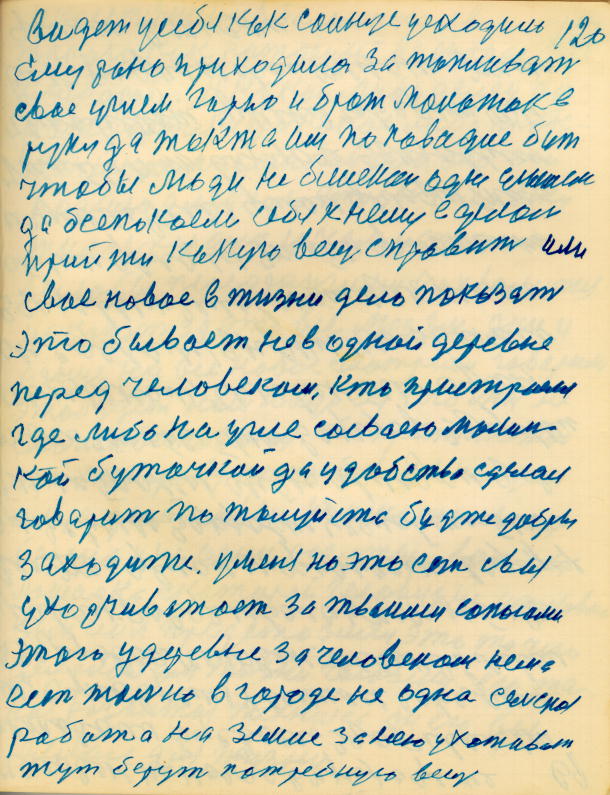 видет у себя как солнце уеходило 120
ему рано приходила за тапливат
свае углем горно и брат малаток в
руки да такта им по навадне бит
чтобы люди не близкаи одне
да беспокоели себя к нему с делом
прийти какую вещ справит или
свае новое в жизни дело показат
это бывает не в одной деревне
перед человеком, кто пристроил
где либо на угле сваею малин
кой будочкой да удобства сделал
говарит пожалуйста будте добры
заходите. у меня на это ест свая
за твоими сапогами
этого у деревне за человеком нема
ест толко в городе не одна
работа на земле за нею ухаживат
тут берут потребную вещ